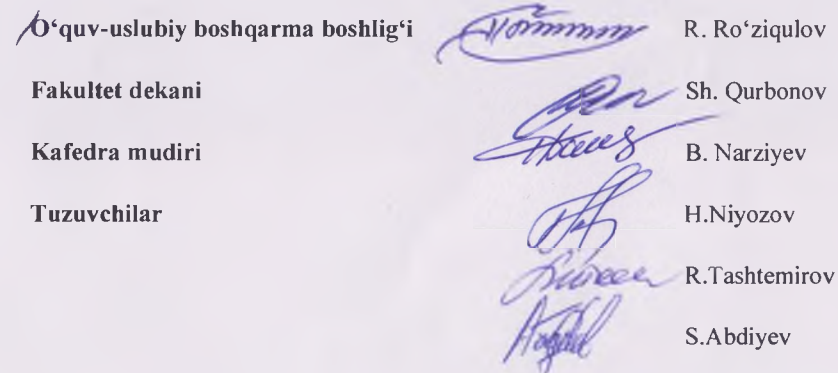 O‘quv-uslubiy boshqarma boshlig‘i R. Ro‘ziqulov
Fakultet dekani Sh. Qurbonov
Kafedra mudiri B. Narziyev
Tuzuvchilar H.Niyozov
R.Tashtemirov
S.Abdiyev